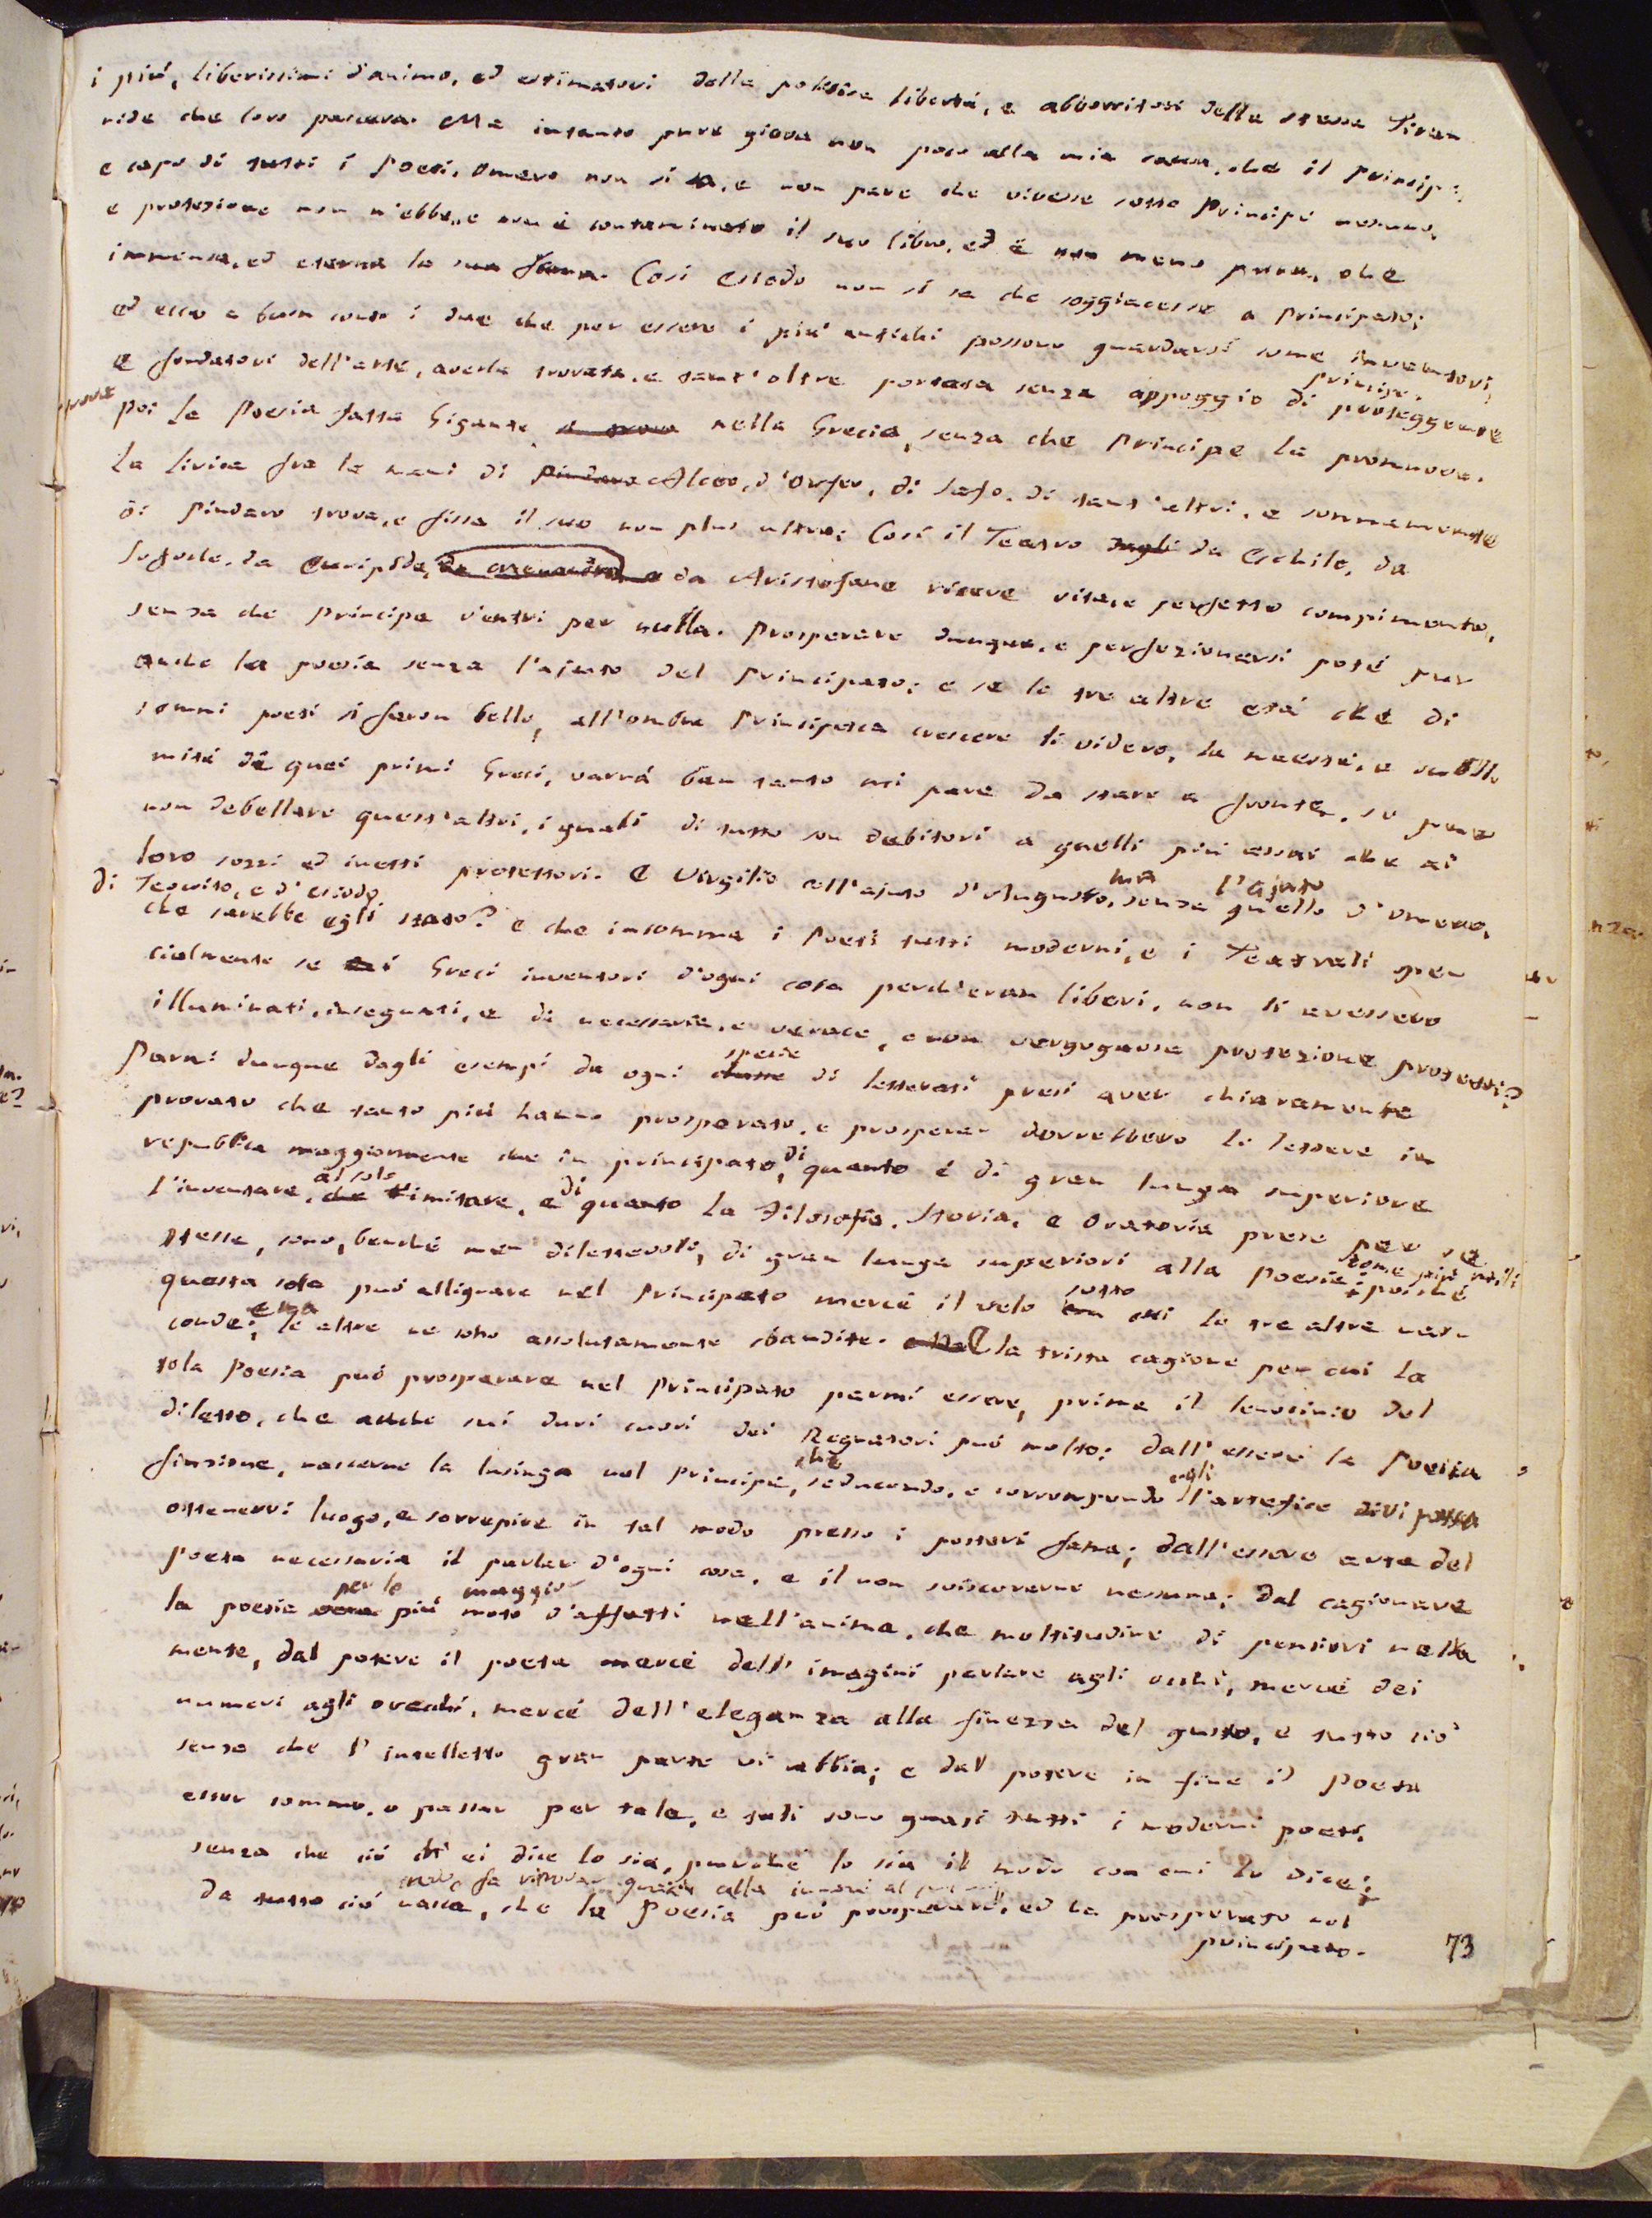 i più, liberissimi d'animo, ed estimatori della politica libertà, e abborritori della stessa Tiran
nide che loro pasceva. Ma intanto pure giova non poco alla mia causa, che il principe,
e capo di tutti i Poeti, Omero non si sa, e non pare che vivesse sotto Principe nessuno,
e protezione non n'ebbe, e non è contaminato il suo libro, ed è non meno pura, che
immensa, ed eterna la sua fama. Così Esiodo non si sa che soggiacesse a Principato;
ed ecco a buon conto i due che per essere i più antichi possono guardarsi come inventori,
principe.
e fondatori dell'arte, averla trovata, e tant'oltre portata senza appoggio di proteggente
prove
poi la Poesia fatta Gigante, nella Grecia, senza che Principe la promuova.
La lirica fra le mani di pindaro Alceo, d'Orfeo, di Safo, di tant'altri, e sommamente
di Pindaro trova, e fissa il suo non plus ultra; Così il Teatro dagli da Eschilo, da
Sofocle, da Euripide, da Menandro e da Aristofane riceve vita, e perfetto compimento,
senza che Principe v'entri per nulla. Prosperare dunque, e perfezionarsi poté pur
anche la poesia senza l'ajuto del Principato; e se le tre altre età che di
sommi poeti si feron belle, all'ombra Principesca crescere li videro, la maestà, e subli
mità di quei primi Greci, varrà ben tanto mi pare da stare a fronte, se pure
non debellare quest'altri, i quali di tutto son debitori a quelli più assai che ai
loro sozzi ed inetti protettori. E Virgilio coll'ajuto d'Augusto, ma senza quello l'ajuto d'Omero,
di Teocrito, e d'esiodo
che sarebbe egli stato? e che insomma i Poeti tutti moderni, e i Teatrali spe
cialmente se i Greci inventori d'ogni cosa perch'eran liberi, non li avessero
illuminati, insegnati, e di necessaria, e verace, e non vergognosa protezione protetti?
Parmi dunque dagli esempi da ogni classe specie di letterati presi aver chiaramente
provato che tanto più hanno prosperato, e prosperar dovrebbero le lettere in
republica maggiormente che in principato, di quanto è di gran lunga superiore
l'inventare, che al solo imitare, e di quanto la Filosofia, Storia, e Oratoria prese per se
stesse, sono, benché men dilettevoli, di gran lunga superiori alla Poesia; come più utili
poiché
questa sola può allignare nel Principato mercé il velo sotto cui le tre altre nas
conde; ma le altre ne sono assolutamente sbandite. La trista cagione per cui la
sola Poesia può prosperare nel Principato parmi essere, prima il lenocinio del
diletto, che anche sui duri cuori dei Regnatori può molto; dall'essere la Poesia
finzione, nascerne la lusinga nel Principe, che seducendo, e corrompendo egli l'artefice
ottenervi luogo, e sorrepire in tal modo presso i posteri fama; dall'essere arte del
Poeta necessaria il parlar d'ogni cosa, e il non sviscerarne nessuna; dal cagionare
la poesia per lo più maggior moto d'affetti nell'anima, che moltitudine di pensieri nella
mente, dal potere il poeta mercé dell'imagini parlare agli occhi, mercé dei
numeri agli orecchi, mercé dell'eleganza alla finezza del gusto, e tutto ciò
senza che l'intelletto gran parte vi abbia; e dal potere in fine il Poeta
esser sommo, o passar per tale, e tali sono quasi tutti i moderni poeti,
senza che ciò ch'ei dice lo sia, purché lo sia il modo con cui lo dice;
Da tutto ciò nasce, che la Poesia può prosperare, ed ha prosperato nel
principato.
73